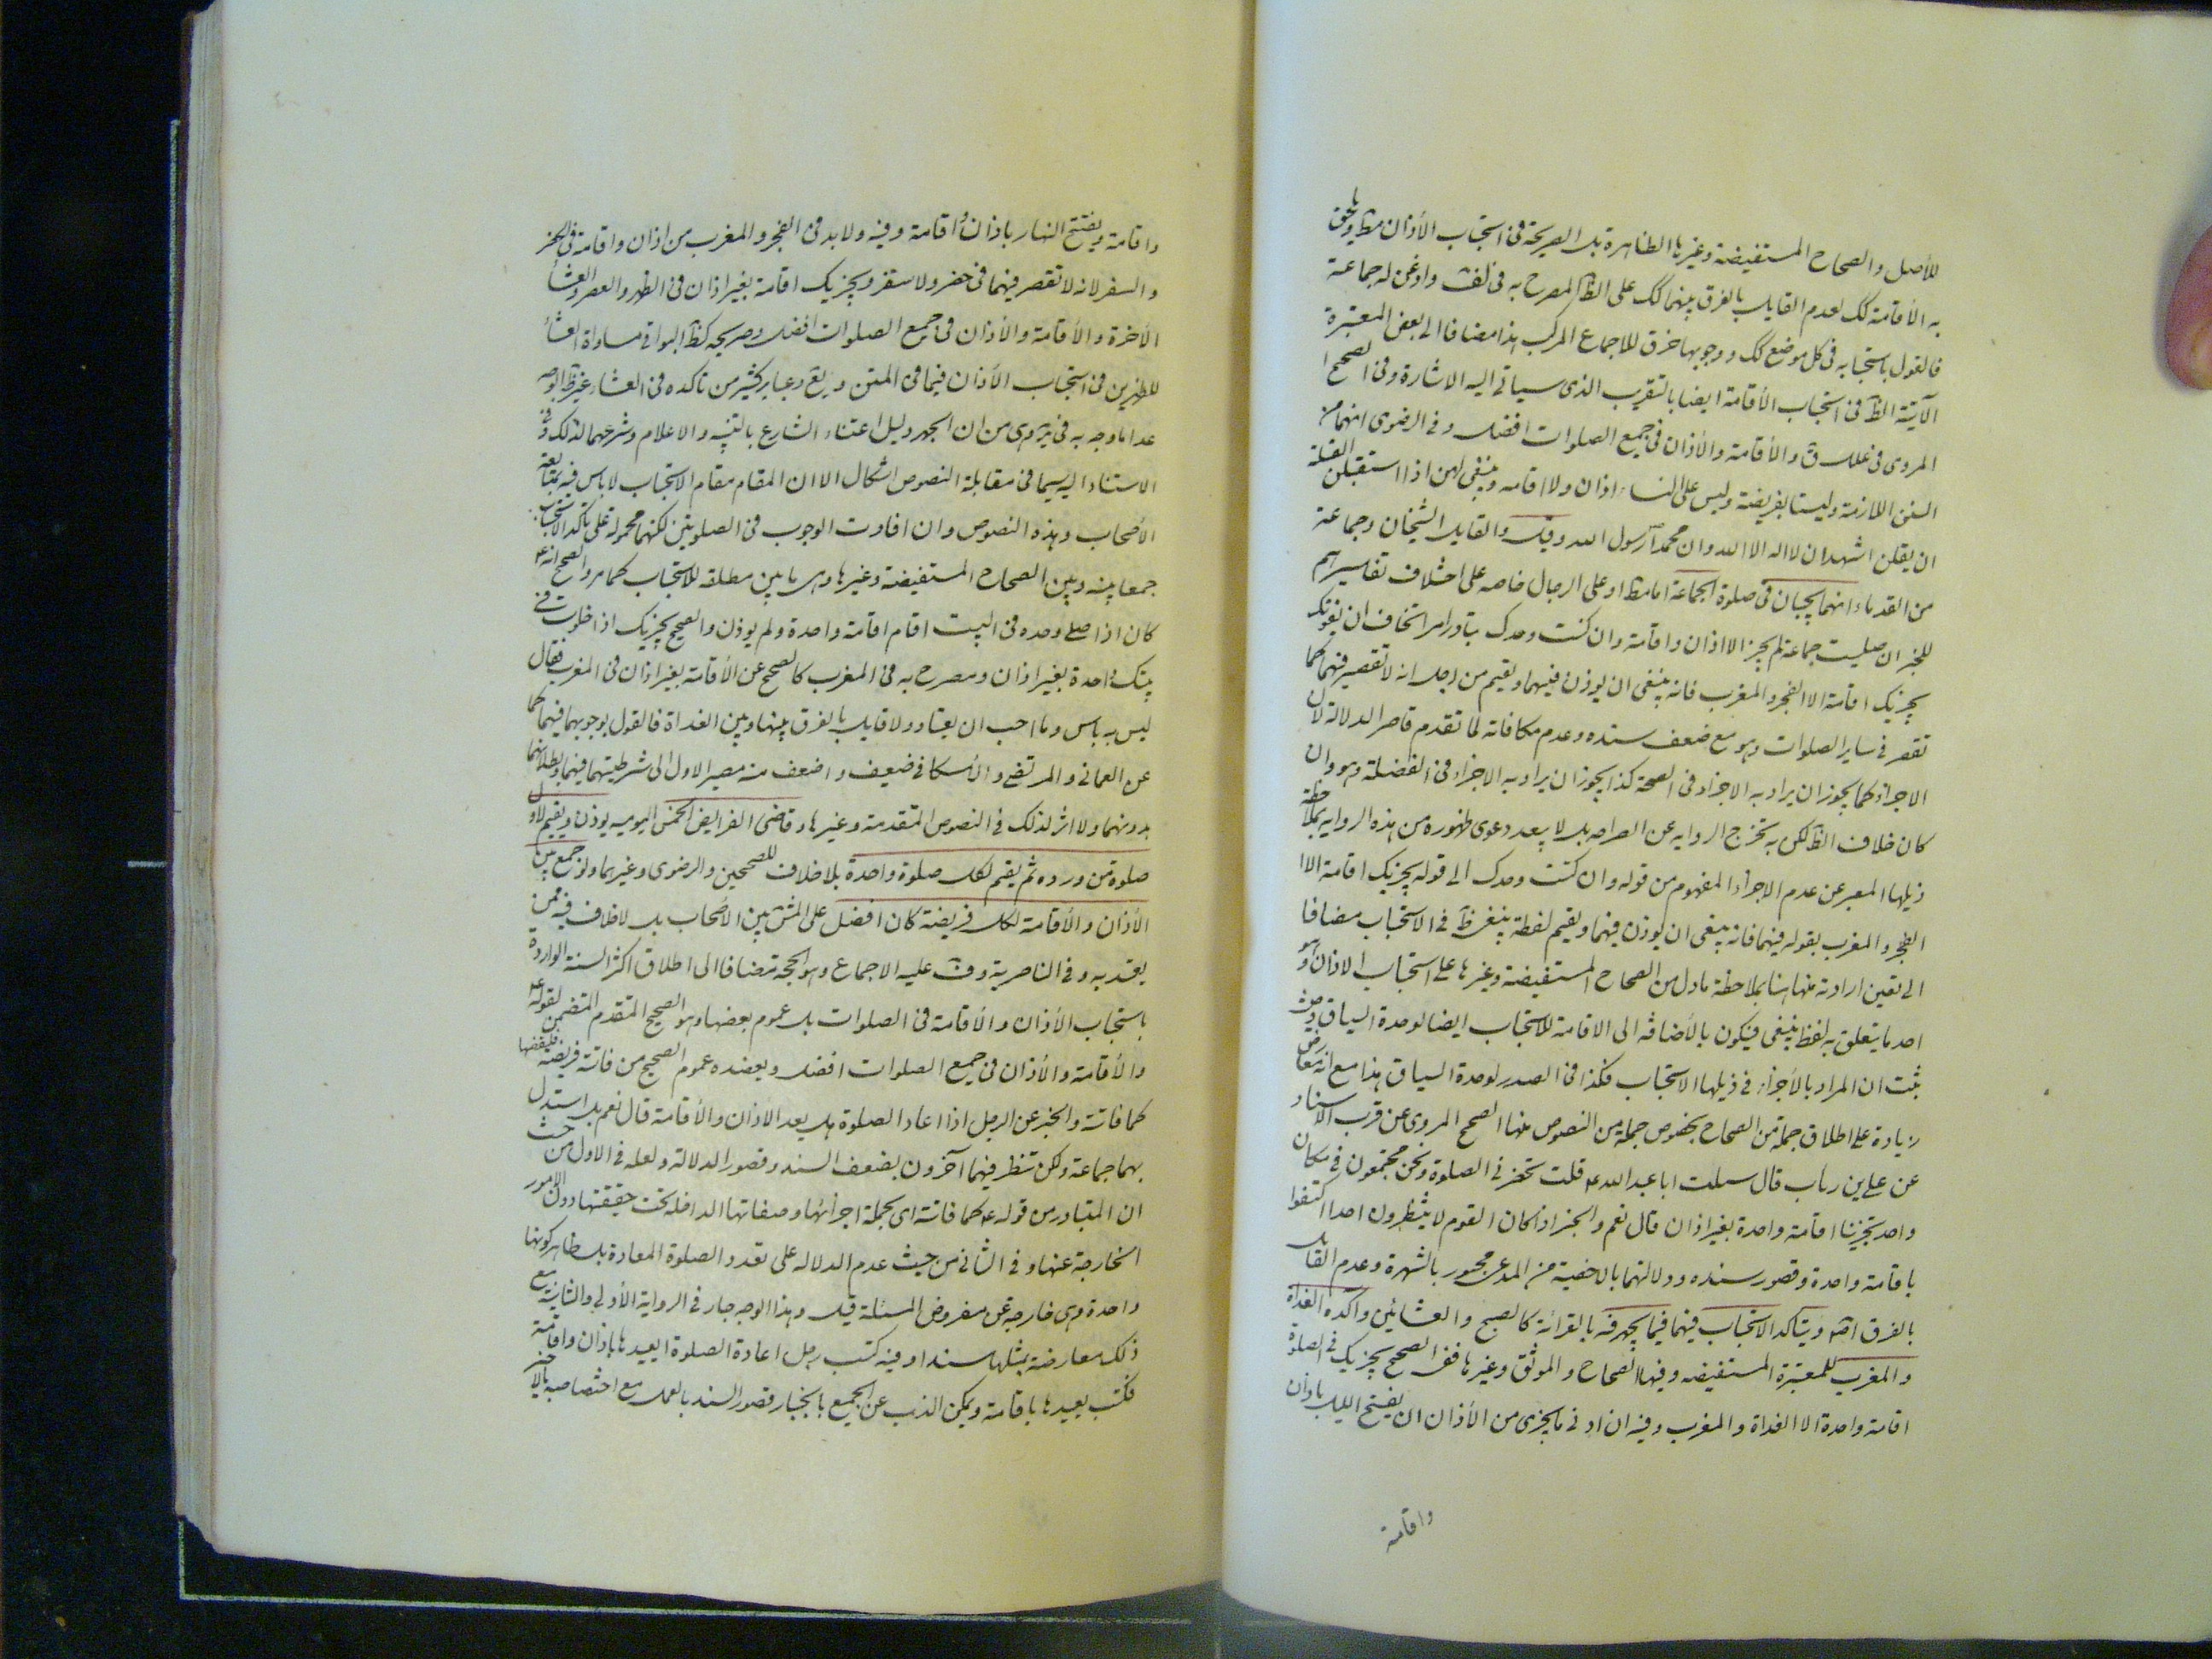 للأصل والصحاح المستفيضة وغيرها الظاهرة بل الصريحة فى استحباب الأذان مطَ ويلحق
به الأقامة كك لعدم القايل بالفرق بينهما كك على الظَ المصرح به فى لف وادعى له جماعة
فالقول باستحبابه فى كل موضع كك ووجوبها خرق للاجماع المركب هذا مضافا الى بعض المعتبرة
الآتية الظَ فى استحباب الأقامة ايضا بالتقريب الذى سياتى اليه الاشارة وفى الصحيح
المروى فى علل ق والأقامة والأذان فى جميع الصلوات افضل وفى الرضوى انهما من
السنن اللازمة وليستا بفريضة وليس على النساء اذان ولا اقامه وينبغى لهن اذا استقبلن القبلة
ان يقلن اشهد ان لا اله الا الله وان محمدا رسول الله وقيل والقايل الشيخان وجماعة
من القدماء انهما يجبان فى صلوة الجماعة اما مطَ او على الرجال خاصه على اختلاف تفاسيرهم
للخبر ان صليت جماعة لم يجز الا اذان واقامة وان كنت وحدك تبادر امرا تخاف ان يفوتك
يجزيك اقامة الا الفجر والمغرب فانه ينبغى ان يوذن فيهما ويقيم من اجل انه لا تقصير فيهما كما
تقصر فى ساير الصلوات وهو مع ضعف سنده وعدم مكافاته لما تقدم قاصر الدلالة لان
الاجزاء كما يجوز ان يراد به الاجزاء فى الصحة كذا يجوز ان يراد به الاجزاء فى الفضيلة وهو وان
كان خلاف الظَ لكن به تخرج الروايه عن الصراحه بل لا يبعد دعوى ظهوره من هذه الروايه بملاحظة
ذيلها المعبر عن عدم الاجزاء المفهوم من قوله وان كنت وحدك الى قوله يجزيك اقامة الا
الفجر والمغرب بقوله فيهما فانه ينبغى ان يوذن فيهما ويقيم لفظة ينبغى ظَ فى الاستحباب مضافا
الى تعين ارادته منها هنا بملاحظة ما دل من الصحاح المستفيضة وغيرها على استحباب الاذان وهو
احد ما يتعلق به لفظ ينبغى فيكون بالأضافه الى الاقامة للاستحباب ايضا لوحدة السياق وحيث
ثبت ان المراد بالأجزاء فى ذيلها الاستحباب فكذا فى الصدر لوحدة السياق هذا مع انه معارض
زيادة على اطلاق جملة من الصحاح بخصوص جملة من النصوص منها الصحيح المروى عن قرب الاسناد
عن على بن رياب قال سالت ابا عبد الله ع قلت تحضر فى الصلوة ونحن مجتمعون فى مكان
واحد تجزينا اقامة واحدة بغير اذان قال نعم والخبر اذا كان القوم لا ينتظرون احدا اكتفوا
باقامة واحدة وقصور سنده ودلالتهما بالاخصية من المدعى مجبور بالشهرة وعدم القايل
بالفرق ويتاكد الاستحباب فيهما فيما يجهر فيه بالقرائة كالصبح والعشائين واكده الغداة
والمغرب للمعتبرة المستفيضه وفيها الصحاح والموثق وغيرها ففى الصحيح يجزيك فى الصلوة
اقامة واحدة الا الغداة والمغرب وفيه ان ادنى ما يجزى من الأذان ان يفتتح الليل باذان
واقامة
واقامة ويفتتح النهار باذان واقامة وفيه ولا بد فى الفجر والمغرب من اذان واقامة فى الحضر
والسفر لانه لا تقصر فيهما فى حضر ولا سفر ويجزيك اقامة بغير اذان فى الظهر والعصر والعشأ
الأخرة والأقامة والأذان فى جميع الصلوات افضل وصريحه كظَ البواقى مساواة العشأ
للظهرين فى استحباب الأذان فيما فى المتن وعبائر كثير من تاكده فى العشاء غير ظَ الوجه
عدا ما وجه به فى من ان الجهر دليل اعتناء الشارع بالتنبيه والاعلام وشرعهما لذلك وفى
الاستناد اليه سيما فى مقابلة النصوص اشكال الا ان المقام مقام الاستحباب لا باس فيه بمتابعة
الأصحاب وهذه النصوص وان افادت الوجوب فى الصلوتين لكنها محمولة على تاكد الاستحباب
جمعا بينه وبين الصحاح المستفيضة وغيرها وهى ما بين مطلقه للاستحباب كما مر والصحيح انه ع
كان اذا صلى وحده فى البيت اقام اقامة واحدة ولم يوذن والصحيح يجزيك اذا خلوت فى
بيتك واحدة بغير اذان ومصرح به فى المغرب كالصحيح عن الأقامة بغير اذان فى المغرب فقال
ليس به باس وما احب ان يعتاد ولا قايل بالفرق بينها وبين الغداة فالقول بوجوبهما فيهما كما
عن العمانى والمرتضى والأسكافى ضعيف واضعف منه مصير الاول الى شرطيتهما فيهما وبطلانهما
بدونهما ولا اثر لذلك فى النصوص المتقدمة وغيرها وقاضى الفرايض الخمس اليوميه يوذن ويقيم لاول
صلوة من ورده ثم يقيم لكل صلوة واحدة بلا خلاف للصحيحين والرضوى وغيرهما ولو جمع بين
الأذان والأقامة لكل فريضة كان افضل على المشَ بين الأصحاب بل لا خلاف فيه ممن
يعتد به وفى الناصرية وف عليه الاجماع وهو الحجة مضافا الى اطلاق اكثر السنة الواردة
باستحباب الأذان والأقامة فى الصلوات بل عموم بعضها وهو الصحيح المتقدم المتضمن لقوله ع
والأقامة والأذان فى جميع الصلوات افضل ويعضده عموم الصحيح من فاتته فريضة فليقضها
كما فاتته والخبر عن الرجل اذا اعاد الصلوة هل يعيد الأذان والأقامة قال نعم بل استدل
بهما جماعة ولكن تنظر فيهما آخرون بضعف السند وقصور الدلالة ولعله فى الاول من حيث
ان المتبادر من قوله ع كما فاتته اى بجملة اجزائها وصفاتها الداخله تحت حقيقتها دون الامور
الخارجة عنها وفى الثانى من حيث عدم الدلاله على تعدد الصلوة المعادة بل ظاهر كونها
واحدة وهى خارجة عن مفروض المسئلة قيل وهذا الوجه جار فى الرواية الأولى والثانية مع
ذلك معارضة بمثلها سندا وفيه كتب رجل اعادة الصلوة ايعيدها باذان واقامة
فكتب يعيدها باقامة ويمكن الذب عن الجميع بانجبار قصور السند بالعمل مع اختصاصه بالاخير